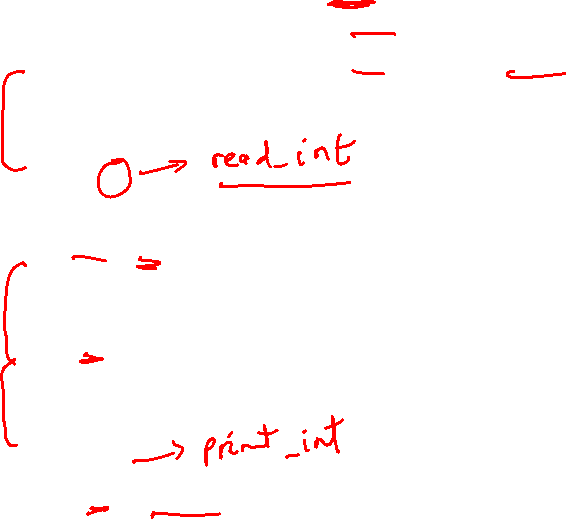 read_int
print_int